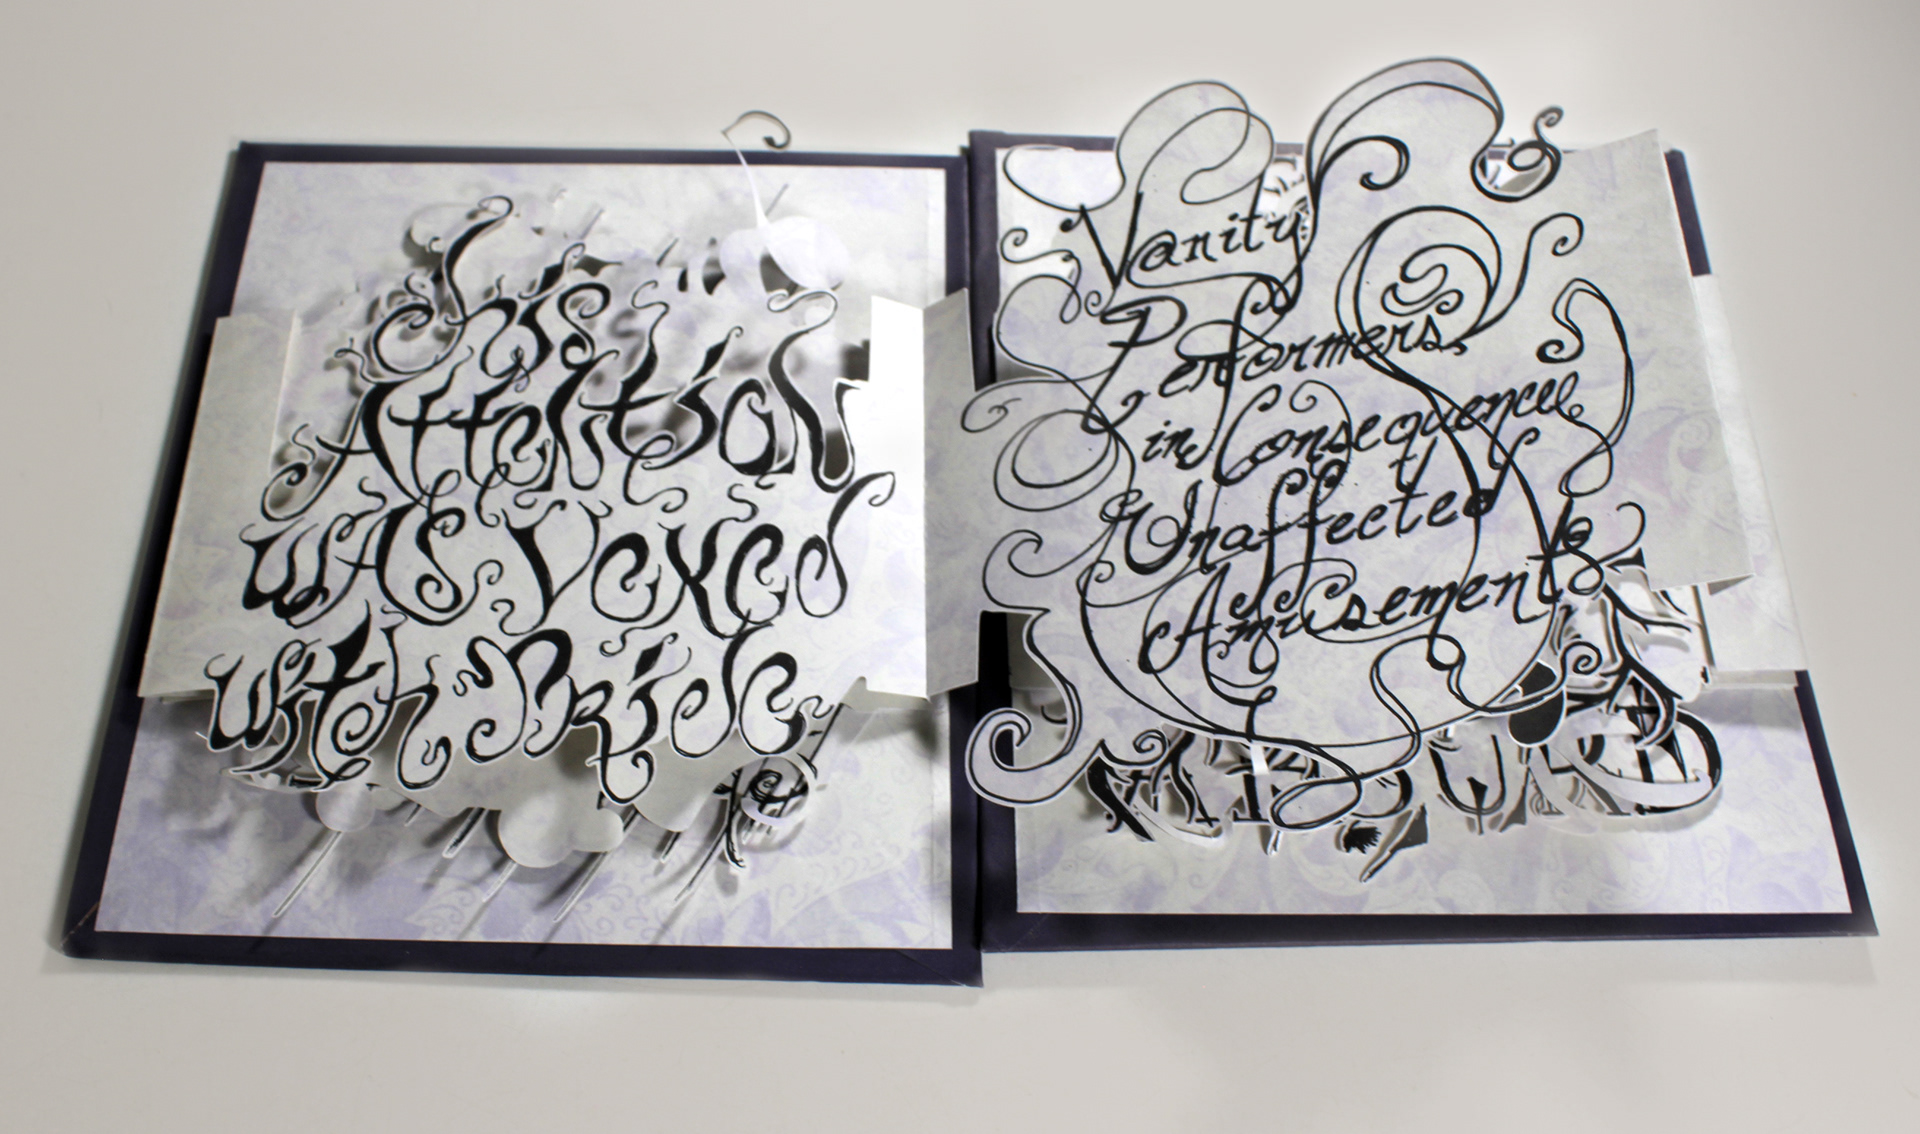 this
Attention
was Vexed
with Pride
Vanity
Performers,
in Consequence
Unaffected
Amusements
ABSURD